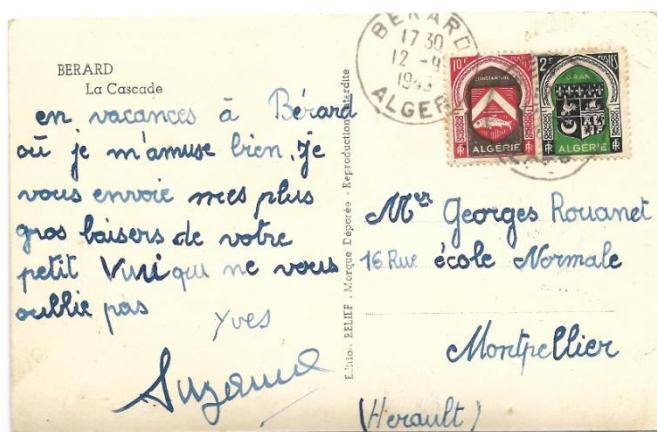 BERARD
La Cascade
en vacances à Bérard
où je m'amuse bien, je
vous envoie mes plus
gros baisers de votre
petit Vivi qui ne vous
oublie pas
Yves
Suzanne
Edition RELIEF - Marque Déposée - Reproduction interdite
BERARD
17 30
12 -
ALGER
10F
CONSTANTINE
ALGÉRIE
RF
2F
ORAN
ALGÉRIE
RF
Georges Rouanet
16 Rue école Normale
Montpellier
(Herault)